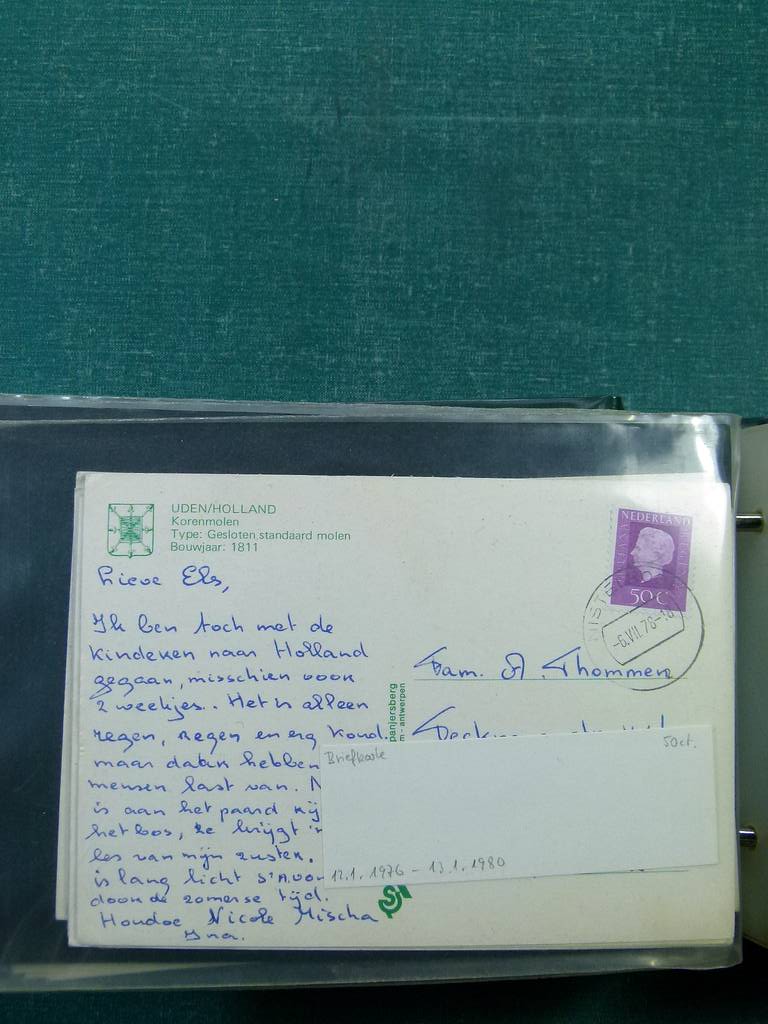 UDEN/HOLLAND
Korenmolen
Type: Gesloten standaard molen
Bouwjaar: 1811
NEDERLAND
50 C
-6.VII.78-18
Lieve Els,
Ik ben toch met de
kinderen naar Holland
gegaan, misschien voor
2 weekjes.. Het is alleen
regen, regen en erg koud.
maar daar hebben
mensen last van.
is aan het paard rij
het bos, ze krijgt 'n
les van mijn zuster.
is lang licht s'Avon
door de zomerse tijd.
Houdoe Nicole Mischa
Ina.
panjersberg
m - antwerpen
Fam. A. Thommen
Briefkaart
50ct.
12.1.1976 - 13.1.1980